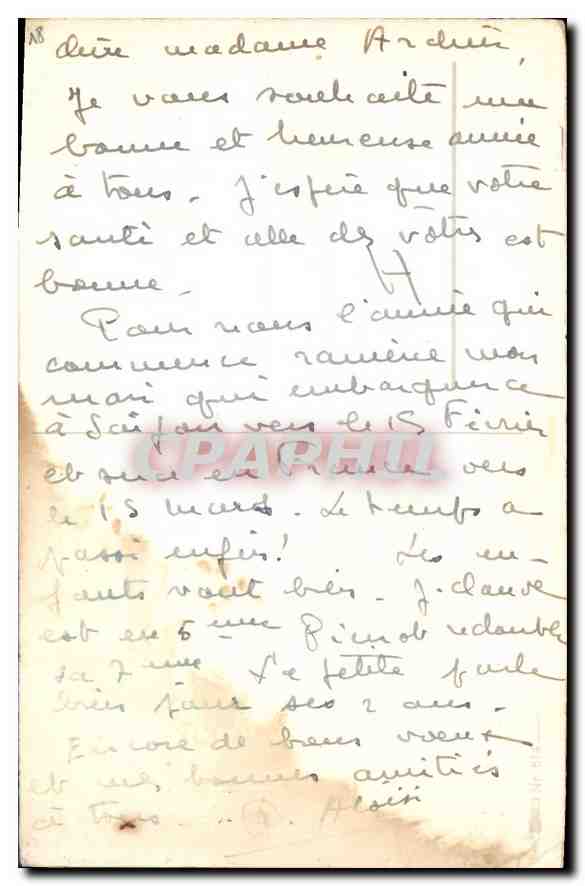 18
chère madame Archer,
Je vous souhaite une
bonne et heureuse année
à tous. J'espère que votre
santé et celle des vôtres est
bonne.
Pour nous l'année qui
commence ramène mon
mari qui embarquera
à Saïgon vers le 15 Février
et sera en France vers
le 15 mars. Le temps a
passé enfin! Les en-
fants vont bien. J. Claude
est en 5ème redouble
sa 7ème La petite parle
bien pour ses 2 ans.
Encore de bons voeux
et mes bonnes amitiés
à tous.
CPAPHIL